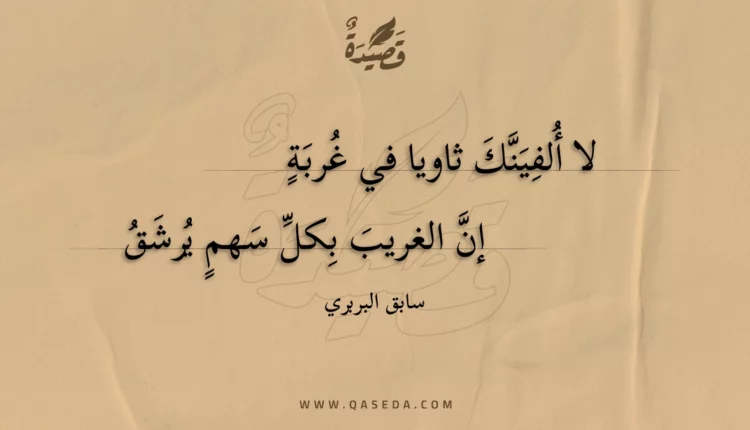 قَصِيدَةٌ
لا أُلفِيَنَّكَ ثاويا في غُربَةٍ
إنَّ الغريبَ بِكلِّ سَهمٍ يُرشَقُ
سابق البربري
WWW.QASEDA.COM